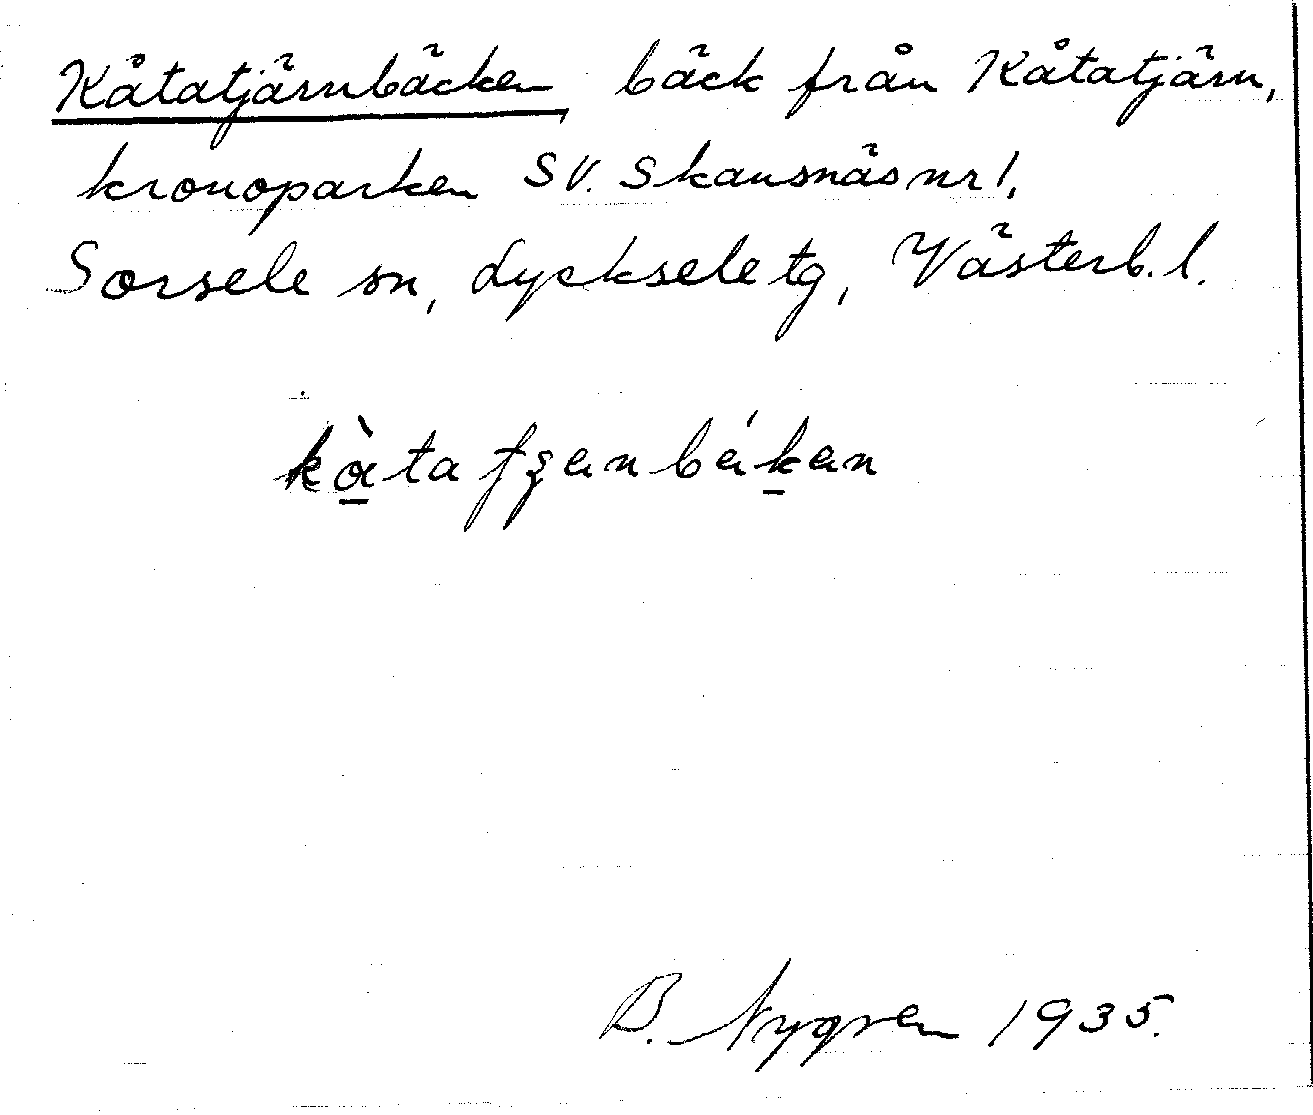 Kåtatjärnbäcken, bäck från Kåtatjärn,
kronoparken SV. Skansnäs nr 1,
Sorsele sn, Lyckseletg, Västerb. l.
B. Nygren 1935.